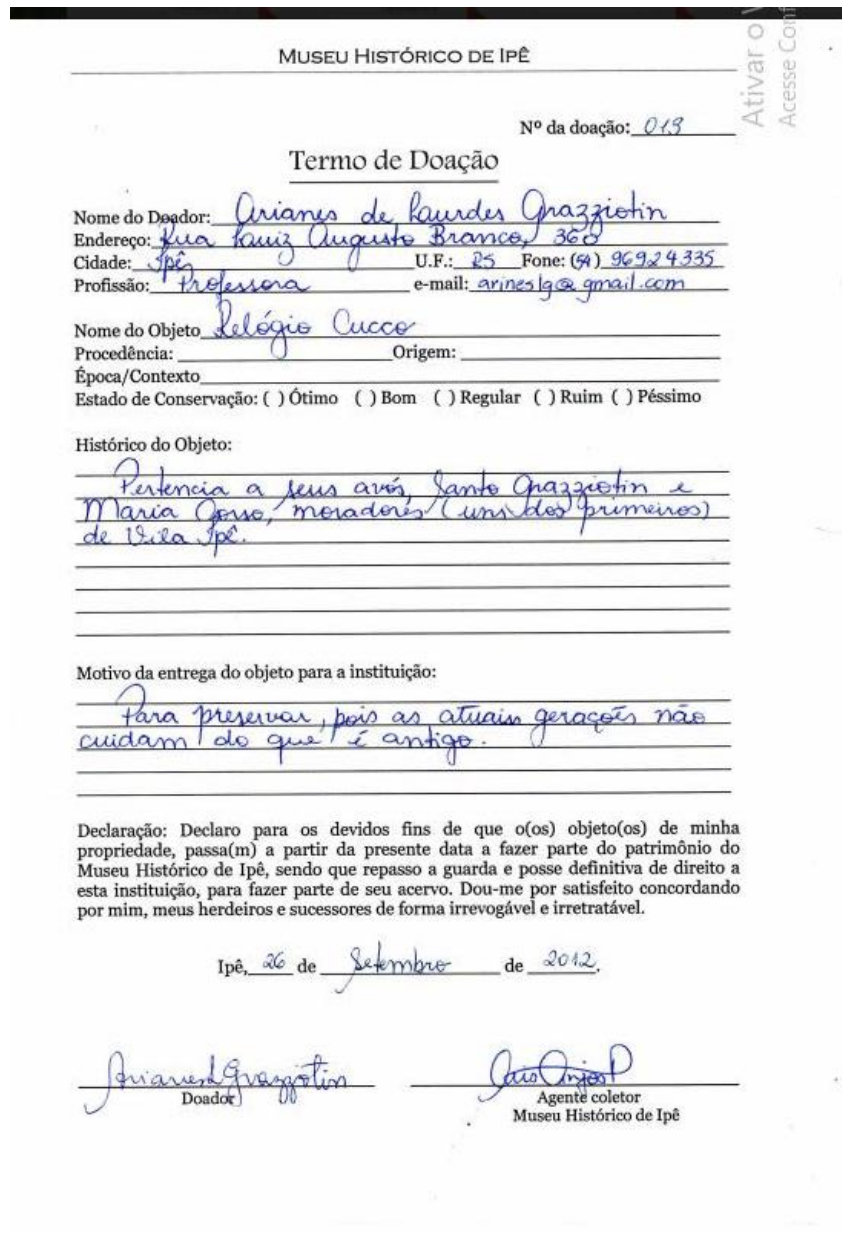 MUSEU HISTÓRICO DE IPÊ
Ativar o
Acesse Conf
Nº da doação: 013
Termo de Doação
Nome do Doador: Arianes de Lourdes Grazziotin
Endereço: Rua Luiz Augusto Branco, 360
Cidade: Ipê U.F.: RS Fone: (54) 96924335
Profissão: Professora e-mail: arineslg@gmail.com
Nome do Objeto Relógio Cucco
Procedência: Origem:
Época/Contexto
Estado de Conservação: ( ) Ótimo ( ) Bom ( ) Regular ( ) Ruim ( ) Péssimo
Histórico do Objeto:
Pertencia a seus avós, Santo Grazziotin e
Maria Gorso, moradores (uns dos primeiros)
de Vila Ipê.
Motivo da entrega do objeto para a instituição:
Para preservar, pois as atuais gerações não
cuidam do que é antigo.
Declaração: Declaro para os devidos fins de que o(os) objeto(os) de minha
propriedade, passa(m) a partir da presente data a fazer parte do patrimônio do
Museu Histórico de Ipê, sendo que repasso a guarda e posse definitiva de direito a
esta instituição, para fazer parte de seu acervo. Dou-me por satisfeito concordando
por mim, meus herdeiros e sucessores de forma irrevogável e irretratável.
Ipê, 26 de Setembro de 2012.
Grazziotin
Doador
Agente coletor
Museu Histórico de Ipê